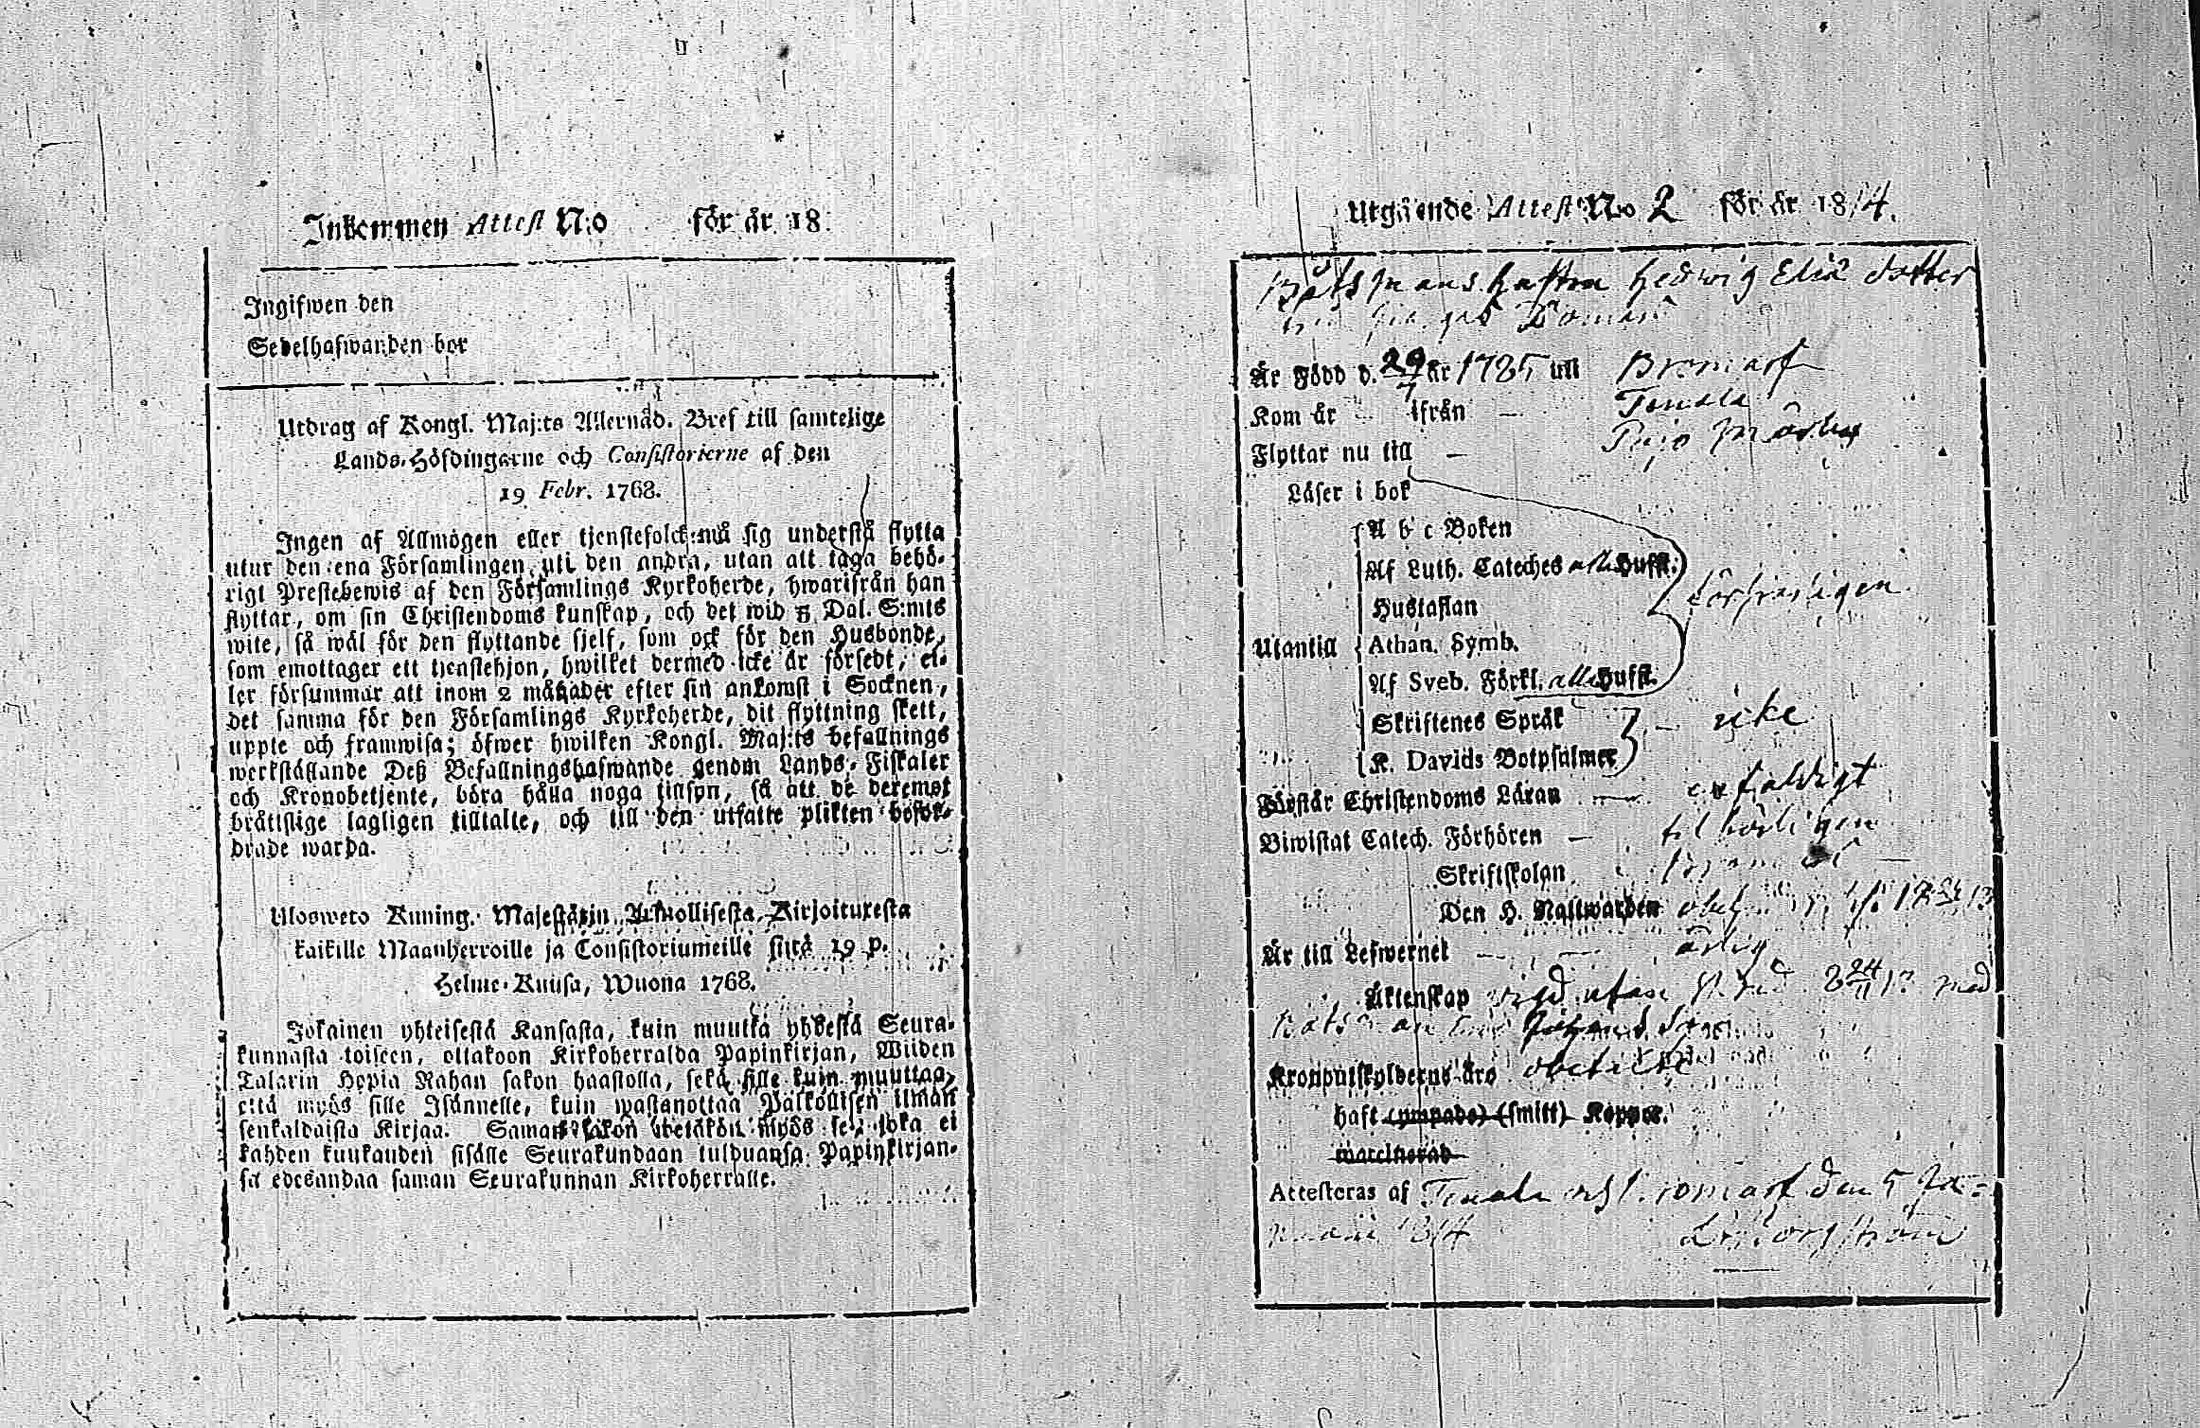 Inkommen Attest N:o för år 18
Ingifwen den
Sedelhafwanden bor
Utdrag af Kongl. Maj:ts Allernåd. Bref till samtelige
Lands-Höfdingarne och Consistorierne af den
19 Febr. 1768.
Ingen af Allmogen eller tjenstefolck må sig understå flytta
utur den ena Församlingen uti den andra, utan att taga behö-
rigt Prestebewis af den Församlings Kyrkoherde, hwarifrån han
flyttar, om sin Christendoms kunskap, och det wid 5 Dal. S:mts
wite, så wäl för den flyttande sjelf, som ock för den Husbonde,
som emottager ett tjenstehjon, hwilket dermed icke är försedt, el-
ler försummar att inom 2 månader efter sin ankomst i Socknen,
det samma för den Församlings Kyrkoherde, dit flyttning skett,
uppte och framwisa; öfwer hwilken Kongl. Maj:ts befallnings
werkställande Deß Befallningshafwande genom Lands-Fiskaler
och Kronobetjente, böra hålla noga tillsyn, så att de deremot
bråttslige lagligen tilltalte, och till den utsatte plikten befor-
drade warda.
Ulosweto Kuning. Majestätin Armollisesta Kirjoituxesta
kaikille Maanherroille ja Consistoriumeille siitä 19 p.
Helme-Kuusa, Wuona 1768.
Jokainen yhteisestä Kansasta, kuin muutta yhdestä Seura-
kunnasta toiseen, ottakoon Kirkoherralda Papinkirjan, Wiiden
Talarin Hopia Rahan sakon haastolla, sekä sille kuin muuttaa,
että myös sille Isännelle, kuin wastanottaa Palkollisen ilman
senkaldaista Kirjaa. Saman sakon wetäkön myös se, joka ei
kahden kuukauden sisälle Seurakundaan tulduansa Papinkirjan-
sa edesandaa saman Seurakunnan Kirkoherralle.
Utgående Attest N:o 2 för år 1814.
Båtsmans hustru Hedwig Elis dotter
Är Född d. 29/7 år 1785 uti Bromarf
Kom år ifrån - Tenala
Flyttar nu till - Pojo
Läser i bok
A b c Boken
Af Luth. Cateches alla Hufst.
Hustaflan försvarligen
Utantill Athan. Symb.
Af Sveb. Förkl. alla Hufst.
Skriftenes Språk - icke
K. Davids Botpsalmer
Förstår Christendoms Läran - enfaldigt
Biwistat Catech. Förhören - tilbörligen
Skriftskolan
Den H. Nattwarden
Är till Lefwernet - ärlig
Äktenskap med
Kronoutskylderne äro obetalte
haft (ympade) (smitt) Koppor.
vaccinerad
Attesteras af Tenala och Bromarf den 5 Ja-
nuarii 1814